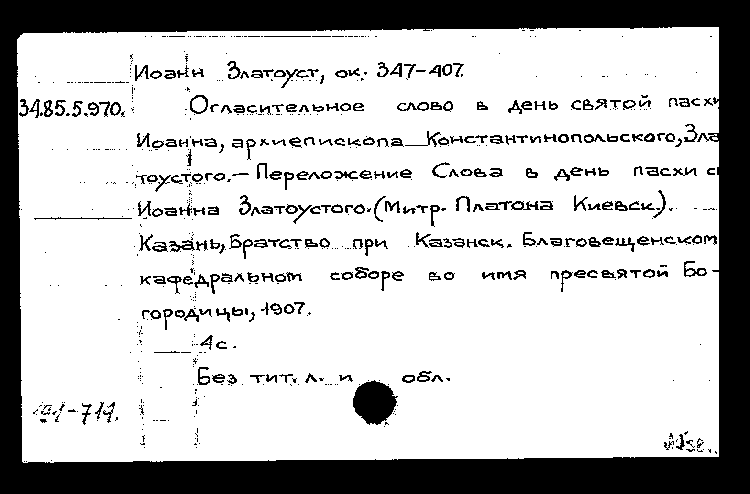 Иоанн Златоуст, ок. 347-407.
34.85.5.970. Огласительное слово в день святой пасхи
Иоанна, архиепископа Константинопольского, Зла
тоустого.- Переложение Слова в день пасхи с
Иоанна Златоустого. (Митр. Платона Киевск.).
Казань, Братство при Казанск. Благовещенском
кафедральном соборе во имя пресвятой Бо-
городицы, 1907.
4с.
Без тит. л. и обл.